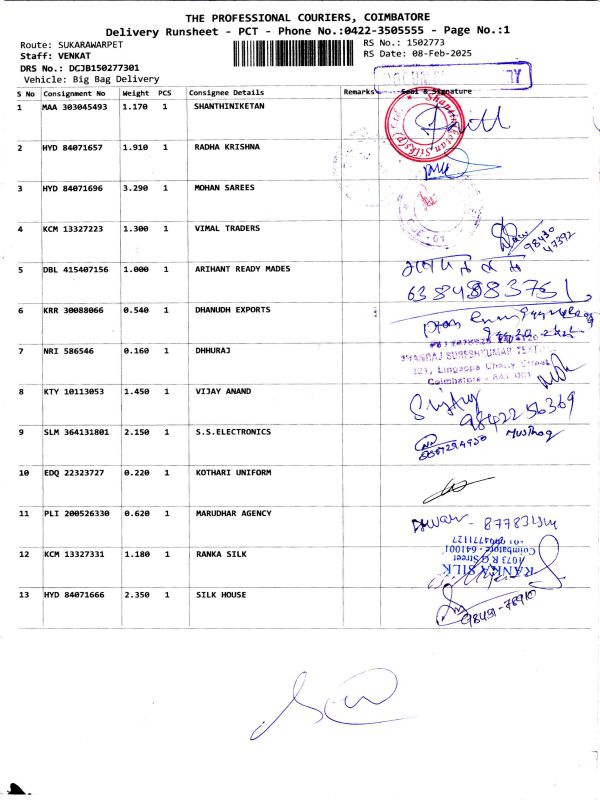 THE PROFESSIONAL COURIERS, COIMBATORE
Delivery Runsheet - PCT - Phone No.:0422-3505555 - Page No.:1
Route: SUKARAWARPET RS No.: 1502773
Staff: VENKAT RS Date: 08-Feb-2025
DRS No.: DCJB150277301
Vehicle: Big Bag Delivery
S No Consignment No Weight PCS Consignee Details Remarks Seal & Signature
1 MAA 303045493 1.170 1 SHANTHINIKETAN
2 HYD 84071657 1.910 1 RADHA KRISHNA
3 HYD 84071696 3.290 1 MOHAN SAREES
4 KCM 13327223 1.300 1 VIMAL TRADERS
98430
47392
5 DBL 415407156 1.000 1 ARIHANT READY MADES
6 KRR 30088066 0.540 1 DHANUDH EXPORTS
7 NRI 586546 0.160 1 DHHURAJ
DHANRAJ SURESHKUMAR
121, Lingappa Chetty Street
Coimbatore - 641 001
8 KTY 10113053 1.450 1 VIJAY ANAND
98422 56369
9 SLM 364131801 2.150 1 S.S.ELECTRONICS
10 EDQ 22323727 0.220 1 KOTHARI UNIFORM
11 PLI 200526330 0.620 1 MARUDHAR AGENCY
12 KCM 13327331 1.180 1 RANKA SILK
RANKA SILK
1073 R G Street
Coimbatore - 641001
13 HYD 84071666 2.350 1 SILK HOUSE